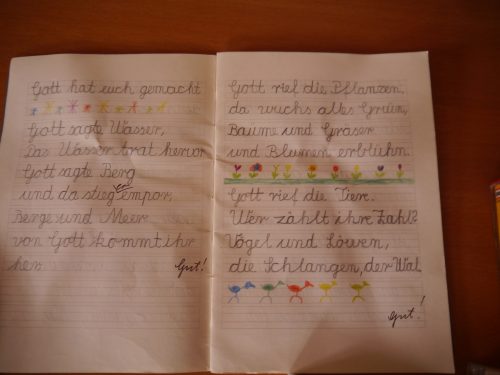 Gott hat euch gemacht
Gott sagte Wasser,
Das Wasser trat hervor
Gott sagte Berg
und da stieg er empor,
Berge und Meer
von Gott kommt ihr
her.
Gut!
Gott rief die Pflanzen,
da wuchs alles Grün,
Bäume und Gräser
und Blumen erblühn.
Gott rief die Tier.
Wer zählt ihre Zahl?
Vögel und Löwen,
die Schlangen, der Wal
Gut!